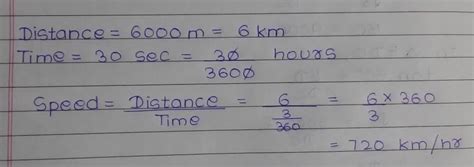 Distance = 6000 m = 6 km
Time = 30 sec = 30/3600 hours
Speed = Distance/Time = 6/(3/360) = 6 × 360/3
= 720 km/hr